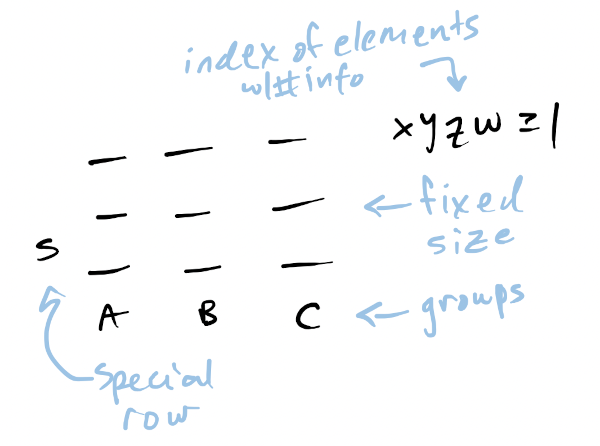 index of elements
w/# info
x y z w ≥ 1
← fixed
size
S
A B C ← groups
special
row